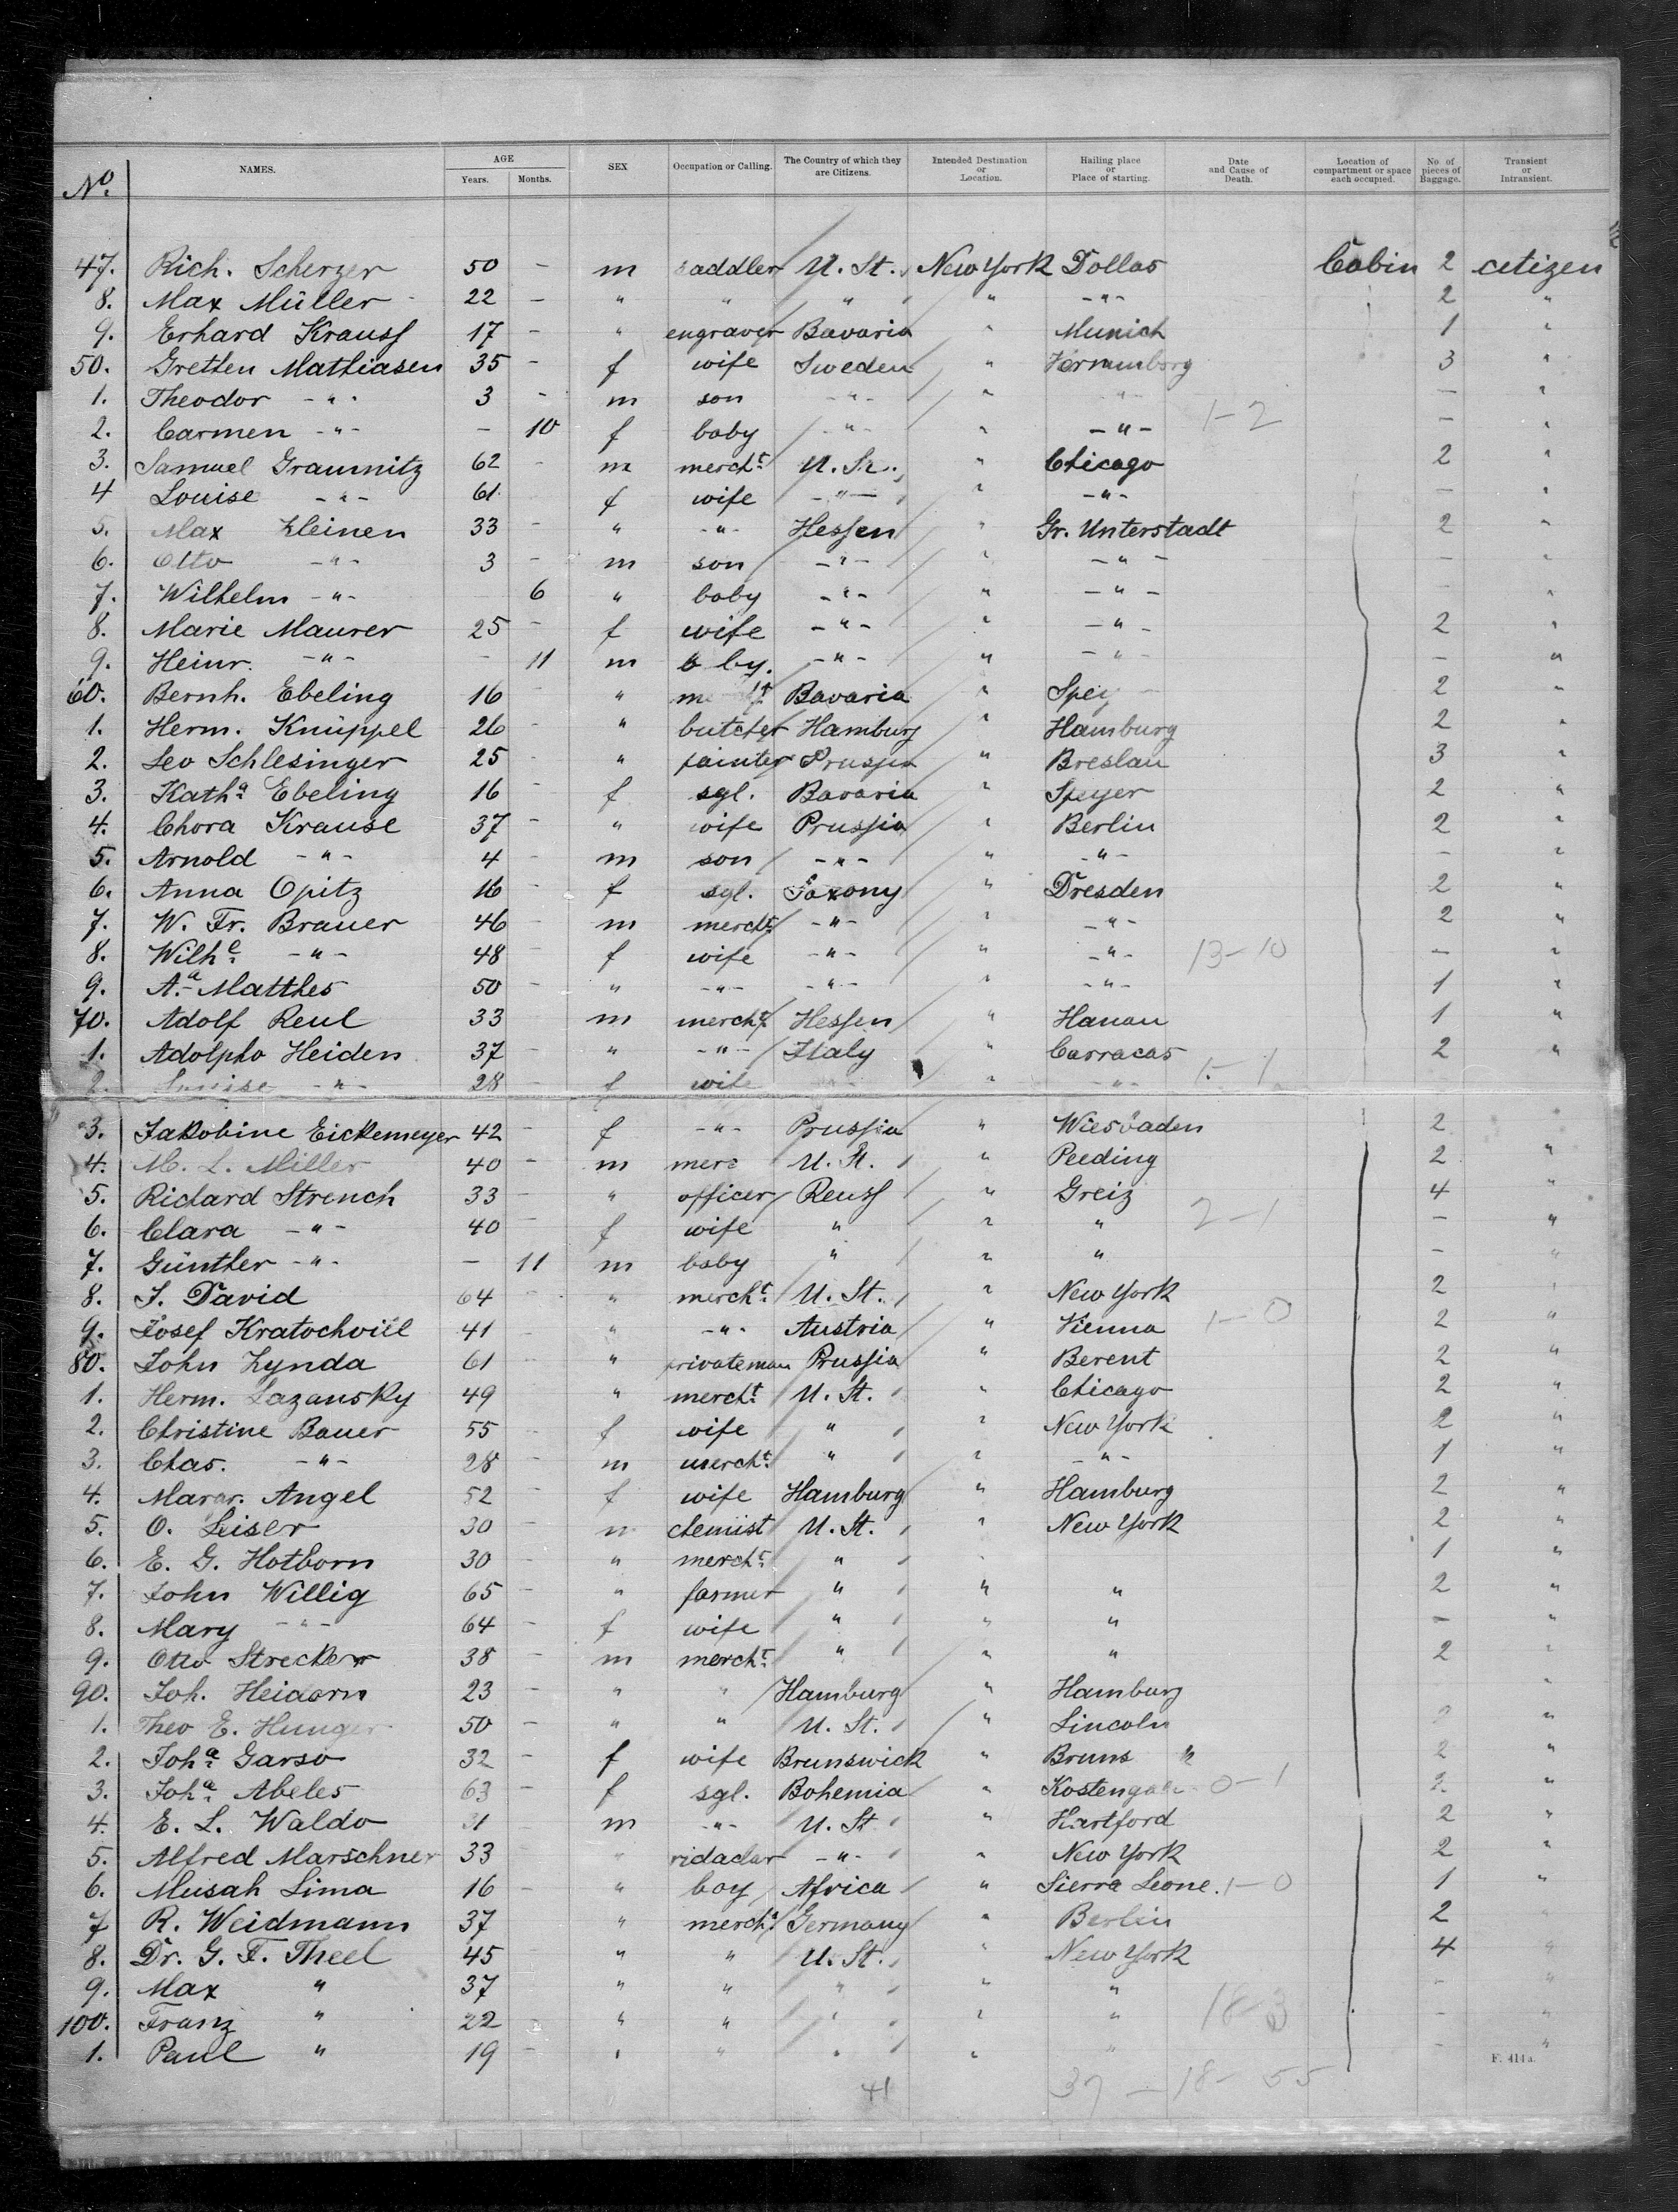 No. NAMES. AGE Years. Months. SEX Occupation or Calling. The Country of which they are Citizens. Intended Destination or Location. Hailing place or Place of starting. Date and Cause of Death. Location of compartment or space each occupied. No of pieces of Baggage. Transient or Intransient.
47. Rich. Scherzer 50 - m saddler U. St. New York Dallas Cabin 2 citizen
8. Max Müller 22 - " " " " -"- 2 "
9. Erhard Krauss 17 - " engraver Bavaria " Munich 1 "
50. Grethen Mathiasen 35 - f wife Sweden " 3 "
1. Theodor -"- 3 - m son -"- " -"- - "
2. Carmen -"- - 10 f baby -"- " -"- 1-2 - "
3. Samuel Graumnitz 62 - m mercht. U. St. " Chicago 2 "
4 Louise -"- 61 f wife -"- " -"- - "
5. Max Kleinen 33 - " -"- Hessen " Gr. Unterstadt 2 "
6. Otto -"- 3 - m son -"- " -"- - "
7. Wilhelm -"- 6 " baby -"- " -"- - "
8. Marie Maurer 25 - f wife -"- " -"- 2 "
9. Heinr. -"- - 11 m b by. -"- " -"- - "
60. Bernh. Ebeling 16 - " Bavaria " Spey 2 "
1. Herm. Knüppel 26 - " butcher Hamburg " Hamburg 2 "
2. Leo Schlesinger 25 - " painter Prussia " Breslau 3 "
3. Katha. Ebeling 16 - f sgl. Bavaria " Speyer 2 "
4. Chora Krause 37 - " wife Prussia " Berlin 2 "
5. Arnold -"- 4 - m son -"- " -"- - "
6. Anna Opitz 16 - f sgl. Saxony " Dresden 2 "
7. W. Fr. Brauer 46 - m mercht. -"- " -"- 2 "
8. Wilhe. -"- 48 - f wife -"- " -"- 13-10 - "
9. Aa. Matthes 50 - " -"- -"- " -"- 1 "
70. Adolf Reul 33 m mercht. Hessen " Hanau 1 "
1. Adolpho Heiden 37 - " -"- Italy " Carracas 2 "
2. Louise -"- 28 - f wife " -"- 1-1
3. Jakobine Eickemeyer 42 - f -"- Prussia " Wiesbaden 2 "
4. M. L. Miller 40 - m merc U. St. " Peeding 2 "
5. Richard Strench 33 - " officer Reuss " Greiz 4 "
6. Clara -"- 40 - f wife " " " 2-1 - "
7. Günther -"- - 11 m baby " " " - "
8. J. David 64 - " mercht. U. St. " New York 2 "
9. Josef Kratochvill 41 - " -"- Austria " Vienna 1-0 2 "
80. John Zynda 61 - " privateman Prussia " Berent 2 "
1. Herm. Lazansky 49 " mercht. U. St. " Chicago 2 "
2. Christine Bauer 55 - f wife " " New York 2 "
3. Chas. -"- 28 - m mercht. " " -"- 1 "
4. Margr. Angel 52 - f wife Hamburg " Hamburg 2 "
5. O. Leiser 30 - m chemist U. St. " New York 2 "
6. E. G. Hotborn 30 - " mercht. " " 1 "
7. John Willig 65 - " farmer " " " 2 "
8. Mary -"- 64 - f wife " " " - "
9. Otto Strecker 38 - m mercht. " " " 2 "
90. Joh. Heidorn 23 - " " Hamburg " Hamburg "
1. Theo E. Hunger 50 - " " U. St. " Lincoln 2 "
2. Joha. Garso 32 - f wife Brunswick " Bruns k 2 "
3. Joha. Abeles 63 f sgl. Bohemia " 0-1 2 "
4. E. L. Waldo 31 m -"- U. St " Hartford 2 "
5. Alfred Marschner 33 " -"- " New York 2 "
6. Musah Lima 16 - " boy Africa " Sierra Leone. 1-0 1 "
7 R. Weidmann 37 " mercht. Germany " Berlin 2 "
8. Dr. G. F. Theel 45 " " U. St. " New York 4 "
9. Max " 37 " " " " " - "
100. Franz " 22 - " " " " " 18-3 - "
1. Paul " 19 - " " " " " - "
F. 414a.
41 37 - 18 - 55